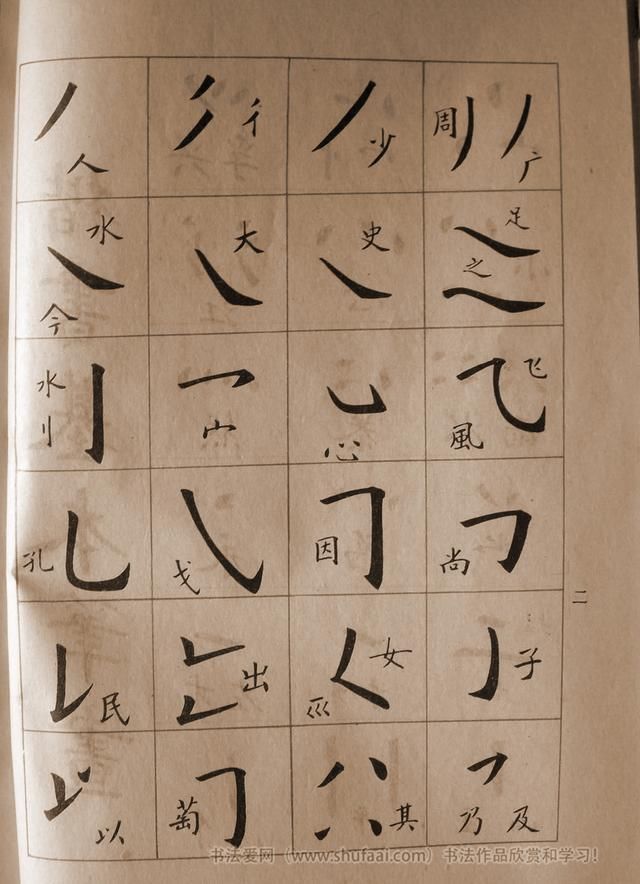 人 彳 少 周 广
水 今 大 史 足 之
水 刂 宀 心 飞 風
孔 戈 因 尚
二
民 出 女 巛 子
以 萄 其 乃 及
书法爱网（www.shufaai.com）书法作品欣赏和学习!